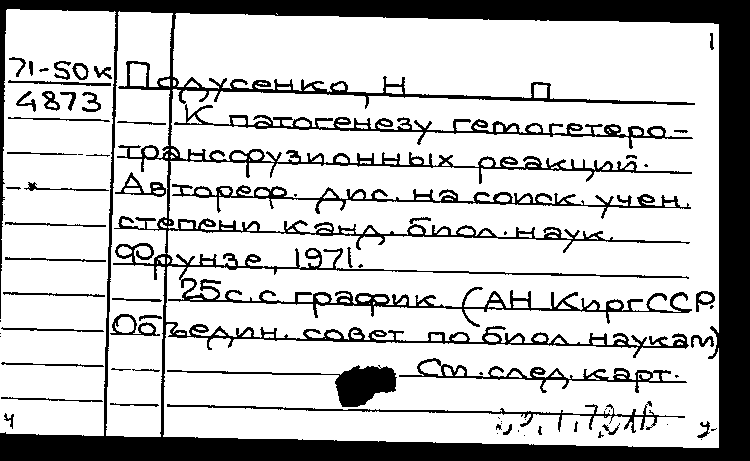 1
71-50к Подусенко, Н П
4873
К патогенезу гемогетеро-
трансфузионных реакций.
Автореф. дис. на соиск. учен.
степени канд. биол. наук.
Фрунзе, 1971.
25с. с график. (АН КиргССР.
Объедин. совет по биол. наукам)
См. след. карт.
ч